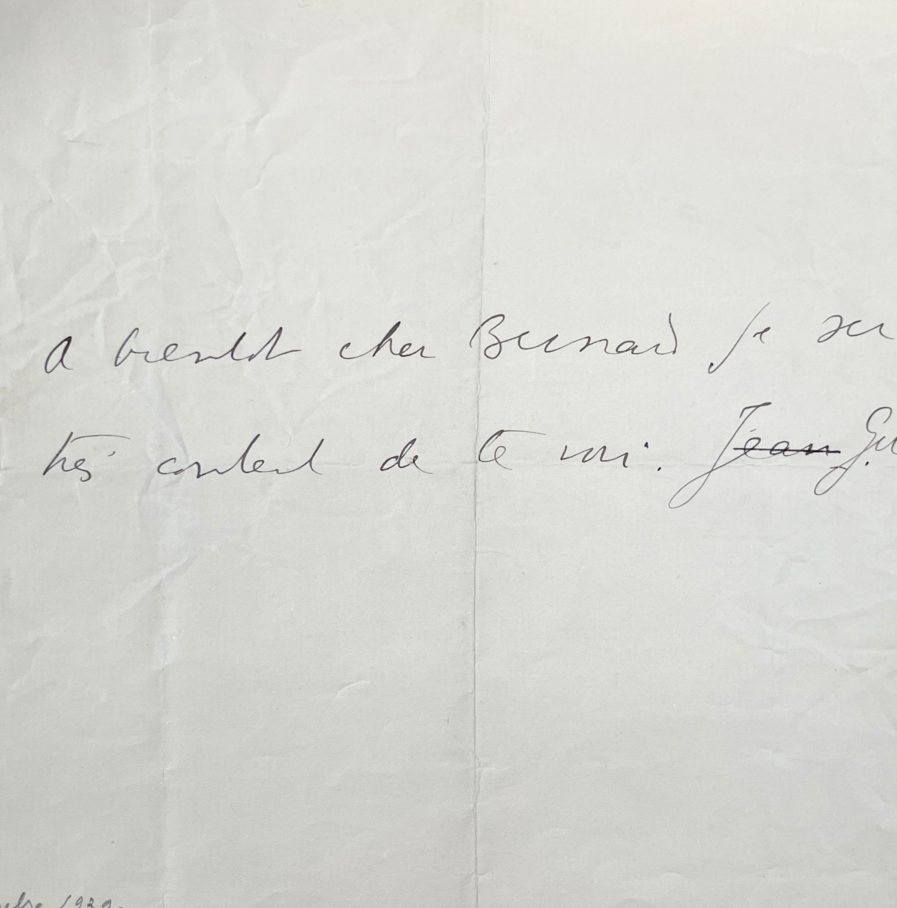 A bientôt cher Bernard je ser
très content de te voir. Jean Gu
1939.